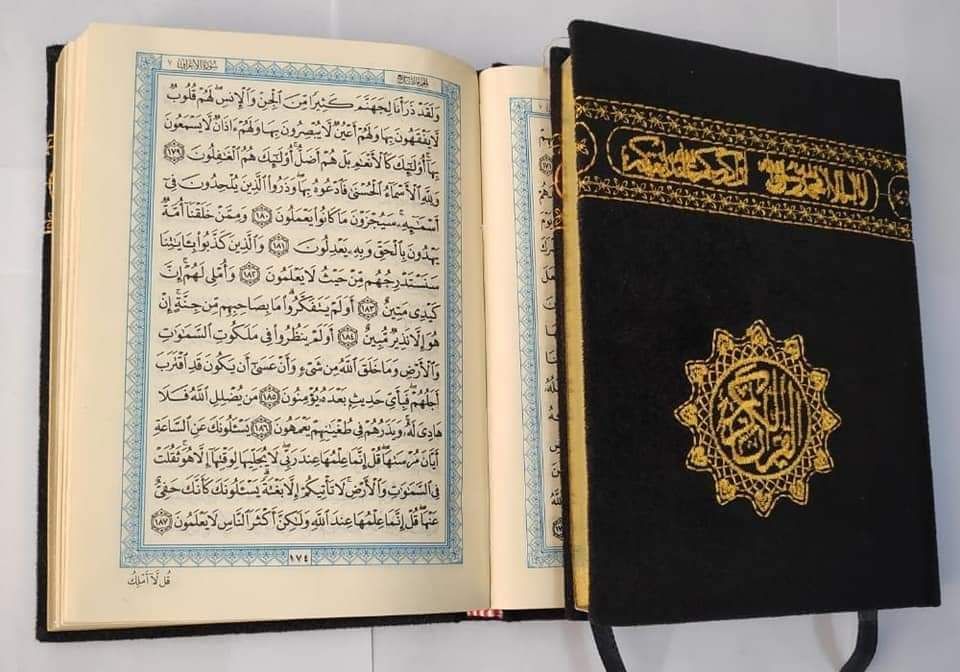 سُورَةُ الأَعْرَافِ ٧
الجزء التاسع
وَلَقَدْ ذَرَأْنَا لِجَهَنَّمَ كَثِيرًا مِّنَ ٱلْجِنِّ وَٱلْإِنسِ ۖ لَهُمْ قُلُوبٌ
لَّا يَفْقَهُونَ بِهَا وَلَهُمْ أَعْيُنٌ لَّا يُبْصِرُونَ بِهَا وَلَهُمْ ءَاذَانٌ لَّا يَسْمَعُونَ
بِهَآ ۚ أُو۟لَٰٓئِكَ كَٱلْأَنْعَٰمِ بَلْ هُمْ أَضَلُّ ۚ أُو۟لَٰٓئِكَ هُمُ ٱلْغَٰفِلُونَ ١٧٩
وَلِلَّهِ ٱلْأَسْمَآءُ ٱلْحُسْنَىٰ فَٱدْعُوهُ بِهَا ۖ وَذَرُوا۟ ٱلَّذِينَ يُلْحِدُونَ فِىٓ
أَسْمَٰٓئِهِۦ ۚ سَيُجْزَوْنَ مَا كَانُوا۟ يَعْمَلُونَ ١٨٠ وَمِمَّنْ خَلَقْنَآ أُمَّةٌ
يَهْدُونَ بِٱلْحَقِّ وَبِهِۦ يَعْدِلُونَ ١٨١ وَٱلَّذِينَ كَذَّبُوا۟ بِـَٔايَٰتِنَا
سَنَسْتَدْرِجُهُم مِّنْ حَيْثُ لَا يَعْلَمُونَ ١٨٢ وَأُمْلِى لَهُمْ ۚ إِنَّ
كَيْدِى مَتِينٌ ١٨٣ أَوَلَمْ يَتَفَكَّرُوا۟ ۗ مَا بِصَاحِبِهِم مِّن جِنَّةٍ ۚ إِنْ
هُوَ إِلَّا نَذِيرٌ مُّبِينٌ ١٨٤ أَوَلَمْ يَنظُرُوا۟ فِى مَلَكُوتِ ٱلسَّمَٰوَٰتِ
وَٱلْأَرْضِ وَمَا خَلَقَ ٱللَّهُ مِن شَىْءٍ وَأَنْ عَسَىٰٓ أَن يَكُونَ قَدِ ٱقْتَرَبَ
أَجَلُهُمْ ۖ فَبِأَىِّ حَدِيثٍۭ بَعْدَهُۥ يُؤْمِنُونَ ١٨٥ مَن يُضْلِلِ ٱللَّهُ فَلَا
هَادِىَ لَهُۥ ۚ وَيَذَرُهُمْ فِى طُغْيَٰنِهِمْ يَعْمَهُونَ ١٨٦ يَسْـَٔلُونَكَ عَنِ ٱلسَّاعَةِ
أَيَّانَ مُرْسَىٰهَا ۖ قُلْ إِنَّمَا عِلْمُهَا عِندَ رَبِّى ۖ لَا يُجَلِّيهَا لِوَقْتِهَآ إِلَّا هُوَ ۚ ثَقُلَتْ
فِى ٱلسَّمَٰوَٰتِ وَٱلْأَرْضِ ۚ لَا تَأْتِيكُمْ إِلَّا بَغْتَةً ۗ يَسْـَٔلُونَكَ كَأَنَّكَ حَفِىٌّ
عَنْهَا ۖ قُلْ إِنَّمَا عِلْمُهَا عِندَ ٱللَّهِ وَلَٰكِنَّ أَكْثَرَ ٱلنَّاسِ لَا يَعْلَمُونَ ١٨٧
١٧٤
قُل لَّآ أَمْلِكُ
القرآن الكريم